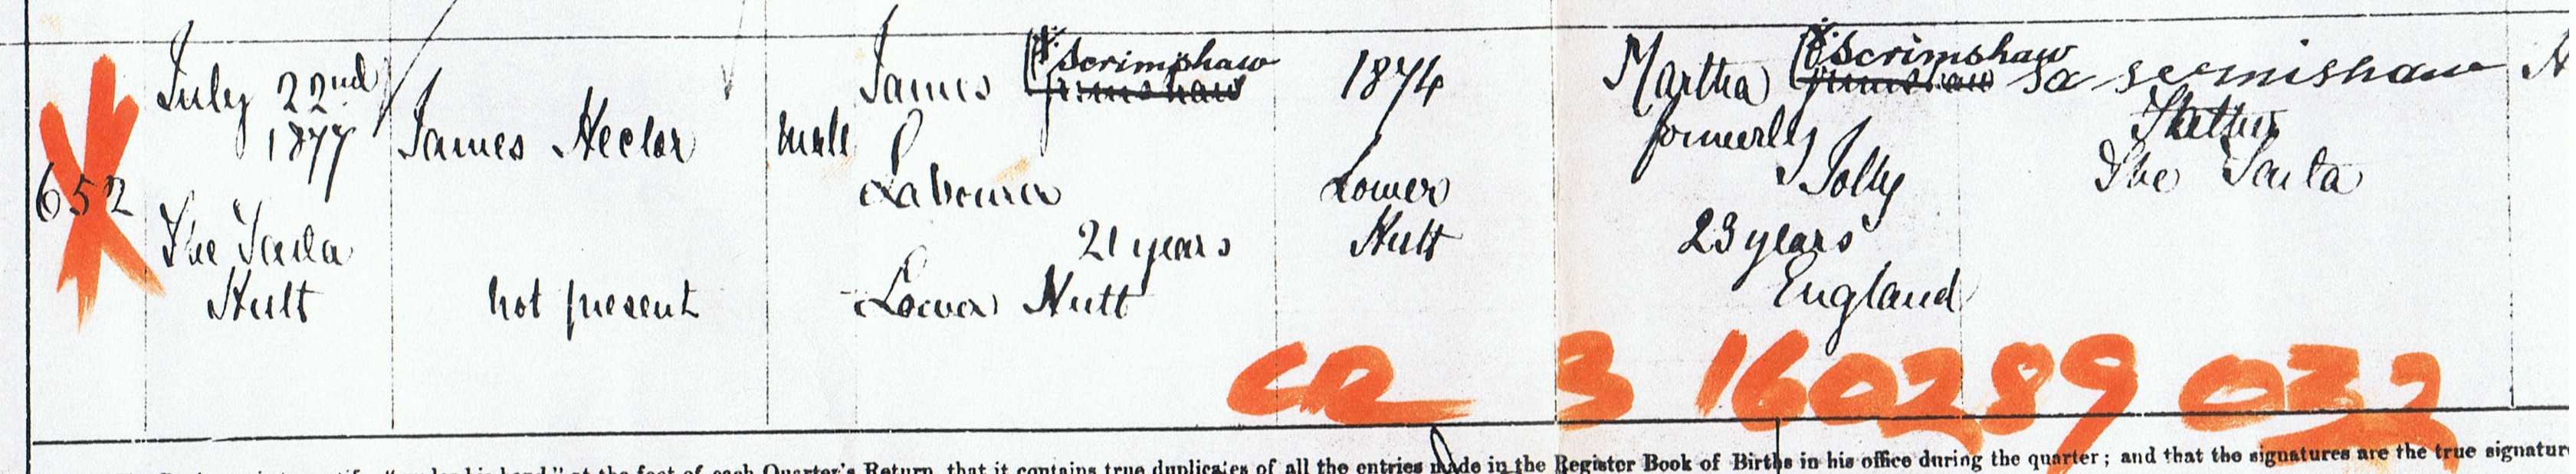 652
July 22nd
1877
The Taita
Hutt
James Hector
not present
Male
James
Scrimshaw
Labourer
21 years
Lower Hutt
1874
Lower
Hutt
Martha
Scrimshaw
formerly
Jolly
23 years
England
scrimshaw
Father
The Taita
CR 3 160289 032
at the foot of each Quarter's Return, that it contains true duplicates of all the entries made in the Register Book of Births in his office during the quarter; and that the signatures are the true signatur